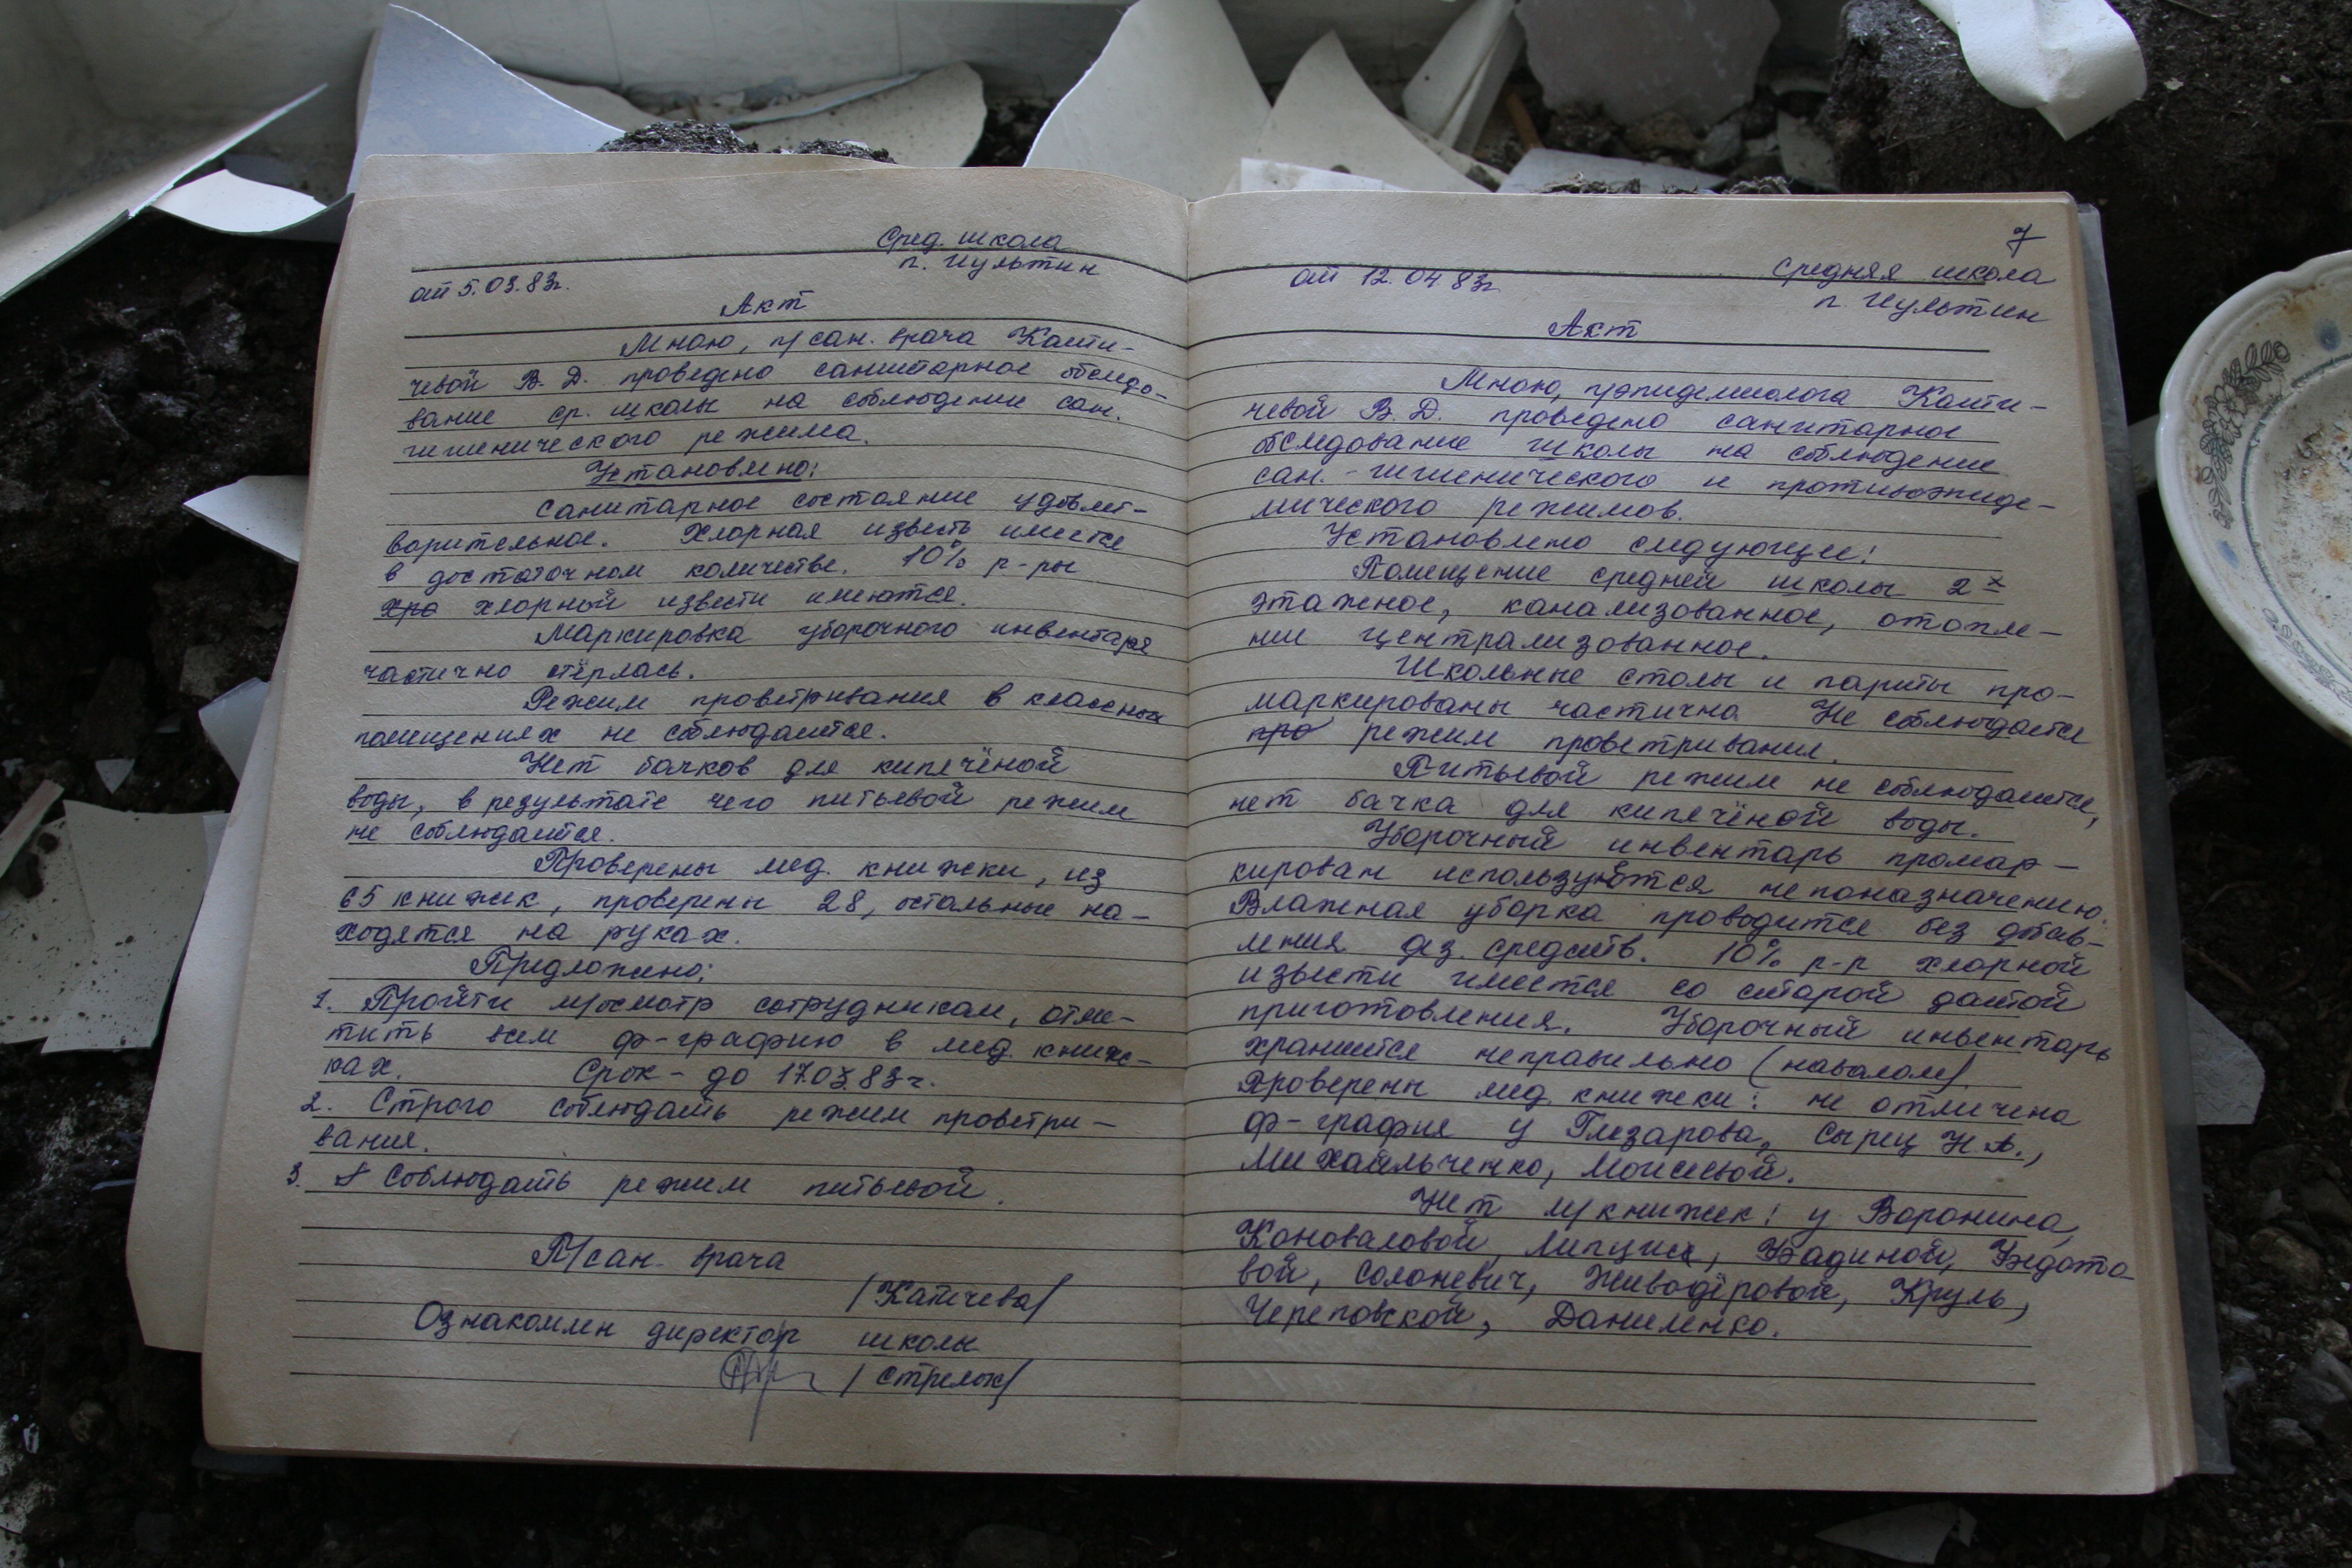 Сред. школа
п. Иультин
от 5.03.83г.
Акт
Мною, п/сан. врача Капи-
чевой В. Д. проведено санитарное обследо-
вание ср. школы на соблюдение сан.
гигиенического режима.
Установлено:
Санитарное состояние удовлет-
ворительное. Хлорная известь имеется
в достаточном количестве. 10% р-ры
хро хлорной извести имеются.
Маркировка уборочного инвентаря
частично стёрлась.
Режим проветривания в классных
помещениях не соблюдается.
Нет бачков для кипячёной
воды, в результате чего питьевой режим
не соблюдается.
Проверены мед. книжки, из
65 книжек, проверены 28, остальные на-
ходятся на руках.
Предложено:
1. Пройти м/осмотр сотрудникам, отме-
тить всем ф-графию в мед. книж-
ках. Срок - до 17.03.83г.
2. Строго соблюдать режим проветри-
вания.
3. Соблюдать режим питьевой.
П/сан. врача
/Капичева/
Ознакомлен директор школы
/Стрелок/
7
от 12.04.83г.
Средняя школа
п. Иультин
Акт
Мною, п/эпидемиолога Капи-
чевой В. Д. проведено санитарное
обследование школы на соблюдение
сан.-гигиенического и противоэпиде-
мического режимов.
Установлено следующее:
Помещение средней школы 2х
этажное, канализованное, отопле-
ние централизованное.
Школьные столы и парты про-
маркированы частично. Не соблюдается
про режим проветривания.
Питьевой режим не соблюдается,
нет бачка для кипячёной воды.
Уборочный инвентарь промар-
кирован используется не по назначению.
Влажная уборка проводится без добав-
ления дез. средств. 10% р-р хлорной
извести имеется со старой датой
приготовления. Уборочный инвентарь
хранится неправильно (навалом).
Проверены мед. книжки: не отмечена
ф-графия у Глезарова, Сырец Н.А.,
Михайльченко, Моисеевой.
Нет м/книжек: у Воронина,
Коноваловой, Убадиной,
вой, Солоневич, Живодёровой, Круль,
Череповской, Даниленко.